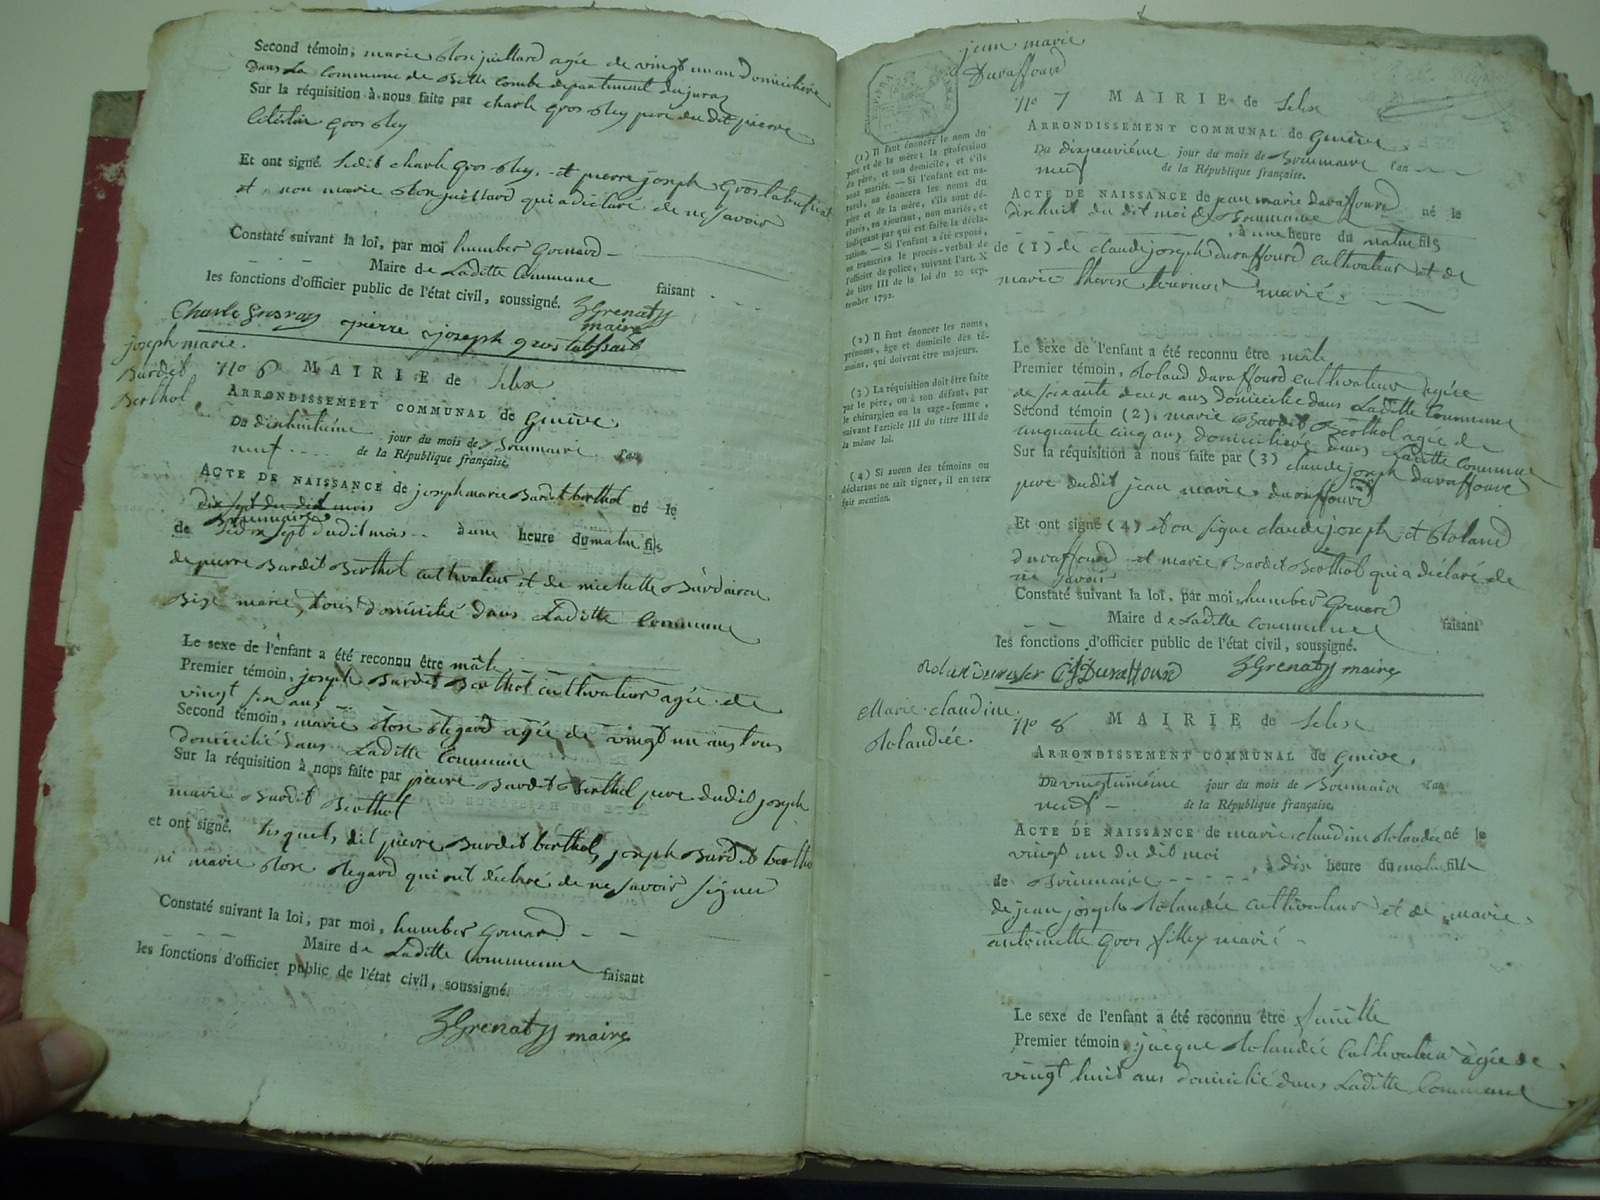 Second témoin, marie Rose juillard agée de vingt un an domiciliée
Dans La Commune de Belle combe departement du jura
Sur la réquisition à nous faite par charle gros pere du dit pierre
Célestin gros
Et ont signé. Ledit charle gros et pierre joseph
et non marie Rose juillard qui a déclaré de ne savoir
Constaté suivant la loi, par moi humber Grenard
Maire de Laditte Commune faisant
les fonctions d'officier public de l'état civil, soussigné.
maire
Charle pierre joseph
joseph marie
Burdet
Berthol
No 6 MAIRIE de Selex
ARRONDISSEMEET COMMUNAL de Genève
Du dixhuitième jour du mois de Brumaire l'an
neuf de la République française.
ACTE DE NAISSANCE de joseph marie Burdet berthol né le
dix sept du dit mois
Brumaire
de dix sept dudit mois à une heure du matin fils
de pierre Burdet Berthol cultivateur et de michelle
marie, tous domicilié dans Laditte Commune
Le sexe de l'enfant a été reconnu être mâle
Premier témoin, joseph Burdet Berthol cultivateur agée de
vingt six ans
Second témoin, marie Rose Regard agée de vingt un ans tous
domicilié dans Laditte Commune
Sur la réquisition à nous faite par pierre Burdet Berthol pere dudit joseph
marie Burdet Berthol
et ont signé. ledit pierre Burdet berthol, joseph Burdet bertho
ni marie Rose Regard qui ont déclaré de ne savoir signer
Constaté suivant la loi, par moi, humber Grenard
Maire de Laditte Commune faisant
les fonctions d'officier public de l'état civil, soussigné.
maire
jean marie
Duraffourd
(1) Il faut énoncer le nom du
père et de la mère; la profession
du père, et son domicile, et s'ils
sont mariés. — Si l'enfant est na-
turel, on énoncera les noms du
père et de la mère, s'ils sont dé-
clarés, en ajoutant, non mariés, et
indiquant par qui est faite la décla-
ration. — Si l'enfant a été exposé,
on transcrira le procès-verbal de
l'officier de police, suivant l'art. X
du titre III de la loi du 20 sep-
tembre 1792.
(2) Il faut énoncer les noms,
prénoms, âge et domicile des té-
moins, qui doivent être majeurs.
(3) La réquisition doit être faite
par le père, ou à son défaut, par
le chirurgien ou la sage-femme,
suivant l'article III du titre III de
la même loi.
(4) Si aucun des témoins ou
déclarans ne sait signer, il en sera
fait mention.
No 7 MAIRIE de Selex
ARRONDISSEMENT COMMUNAL de Genève
Du dixneuvième jour du mois de Brumaire l'an
neuf de la République française.
ACTE DE NAISSANCE de jean marie Duraffourd né le
dixhuit du dit moi de Brumaire
, à une heure du matin fils
de (1) de claude joseph duraffourd cultivateur et de
marie therese marié.
Le sexe de l'enfant a été reconnu être mâle
Premier témoin, Roland duraffourd cultivateur agée
de soixante deux ans domicilié dans Laditte Commune
Second témoin (2), marie Burdet Berthol agée de
cinquante cinq ans domiciliée dans Laditte Commune
Sur la réquisition à nous faite par (3) claude joseph duraffourd
pere dudit jean marie duraffourd
Et ont signé (4) et on signe claude joseph et Roland
duraffourd et marie Burdet Berthol qui a déclaré de
ne savoir
Constaté suivant la loi, par moi humber Grenard
Maire de Laditte Commune faisant
les fonctions d'officier public de l'état civil, soussigné.
Duraffourd maire
Marie claudine
Rolandée.
No 8 MAIRIE de Selex
ARRONDISSEMENT COMMUNAL de Genève,
Du vingtunième jour du mois de Brumaire l'an
neuf de la République française.
ACTE DE NAISSANCE de marie claudine Rolandée né le
vingt un du dit moi
de Brumaire , à dix heure du matin fille
de jean joseph Rolandée cultivateur et de marie
antoinette gros marié
Le sexe de l'enfant a été reconnu être femelle
Premier témoin, jacque Rolandée cultivateur agée de
vingt huit ans domicilié dans Laditte Commune